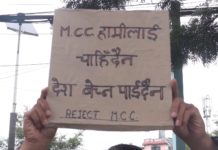 M.C.C हामीलाई
चाहिँदैन
देश बेच्न पाईदैन
REJECT M.C.C.